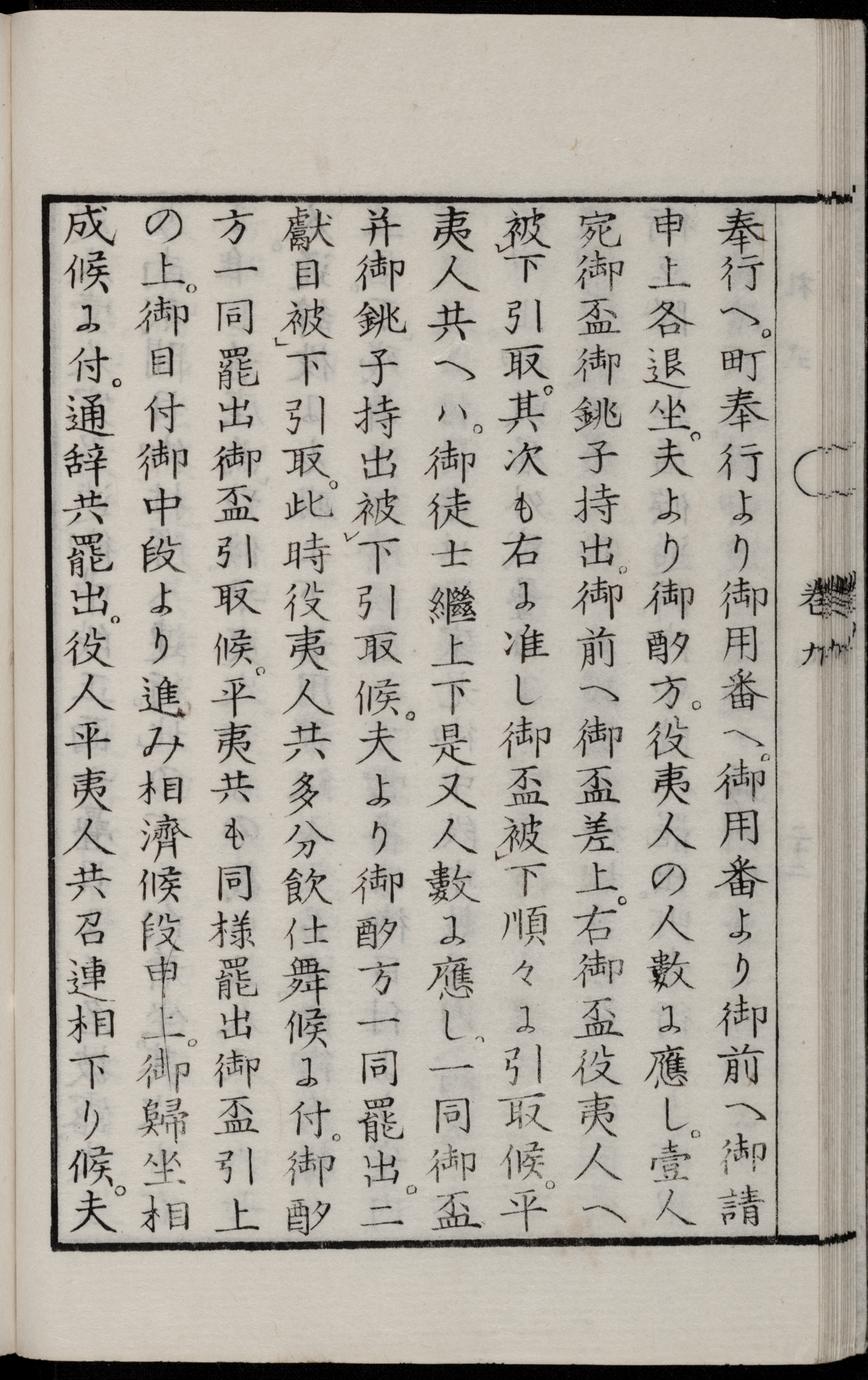 奉行へ。町奉行より御用番へ。御用番より御前へ御請
申上各退坐。夫より御酌方。役夷人の人數に應し。壹人
宛御盃御銚子持出。御前へ御盃差上。右御盃役夷人へ
被下引取。其次も右に准し御盃被下順々に引取候。平
夷人共へハ。御徒士繼上下是又人數に應し、一同御盃
并御銚子持出被下引取候。夫より御酌方一同罷出。二
獻目被下引取。此時役夷人共多分飲仕舞候に付。御酌
方一同罷出御盃引取候。平夷共も同様罷出御盃引上
の上。御目付御中段より進み相濟候段申上。御歸坐相
成候に付。通辞共罷出。役人平夷人共召連相下り候。夫
卷九